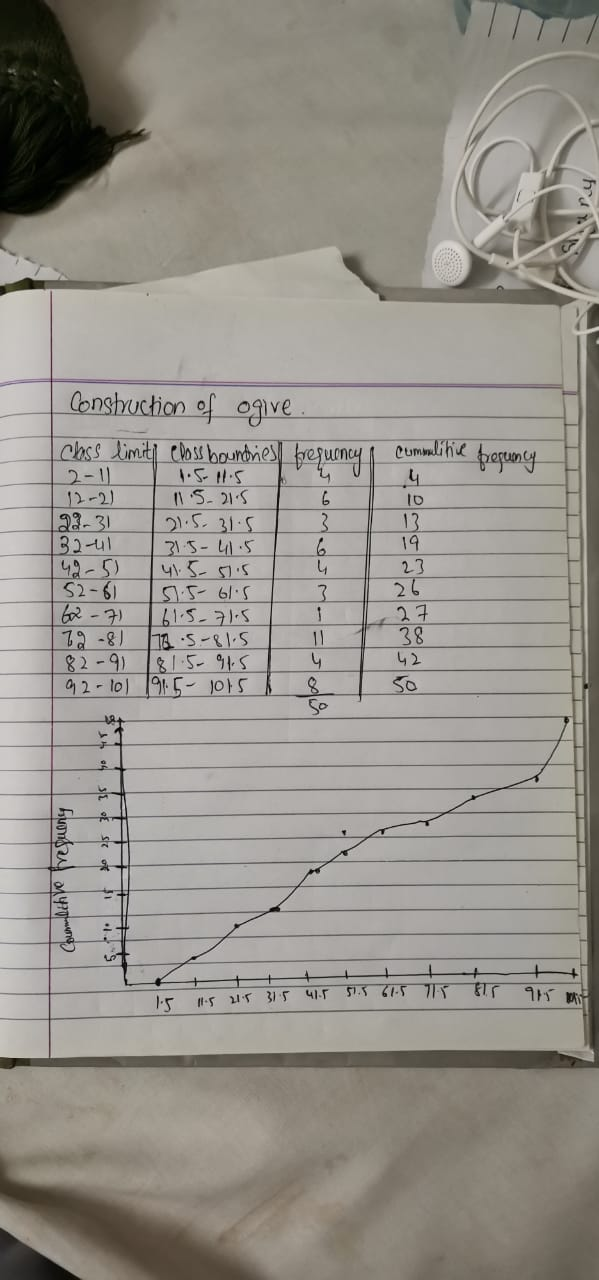 Construction of ogive.
class limit class boundries frequency cummulitive frequency
2-11 1.5-11.5 4 4
12-21 11.5-21.5 6 10
22-31 21.5-31.5 3 13
32-41 31.5-41.5 6 19
42-51 41.5-51.5 4 23
52-61 51.5-61.5 3 26
62-71 61.5-71.5 1 27
72-81 71.5-81.5 11 38
82-91 81.5-91.5 4 42
92-101 91.5-101.5 8 50
50
50
45
40
35
30
25
20
15
10
5
Cummulitive frequency
1.5 11.5 21.5 31.5 41.5 51.5 61.5 71.5 81.5 91.5 101.5